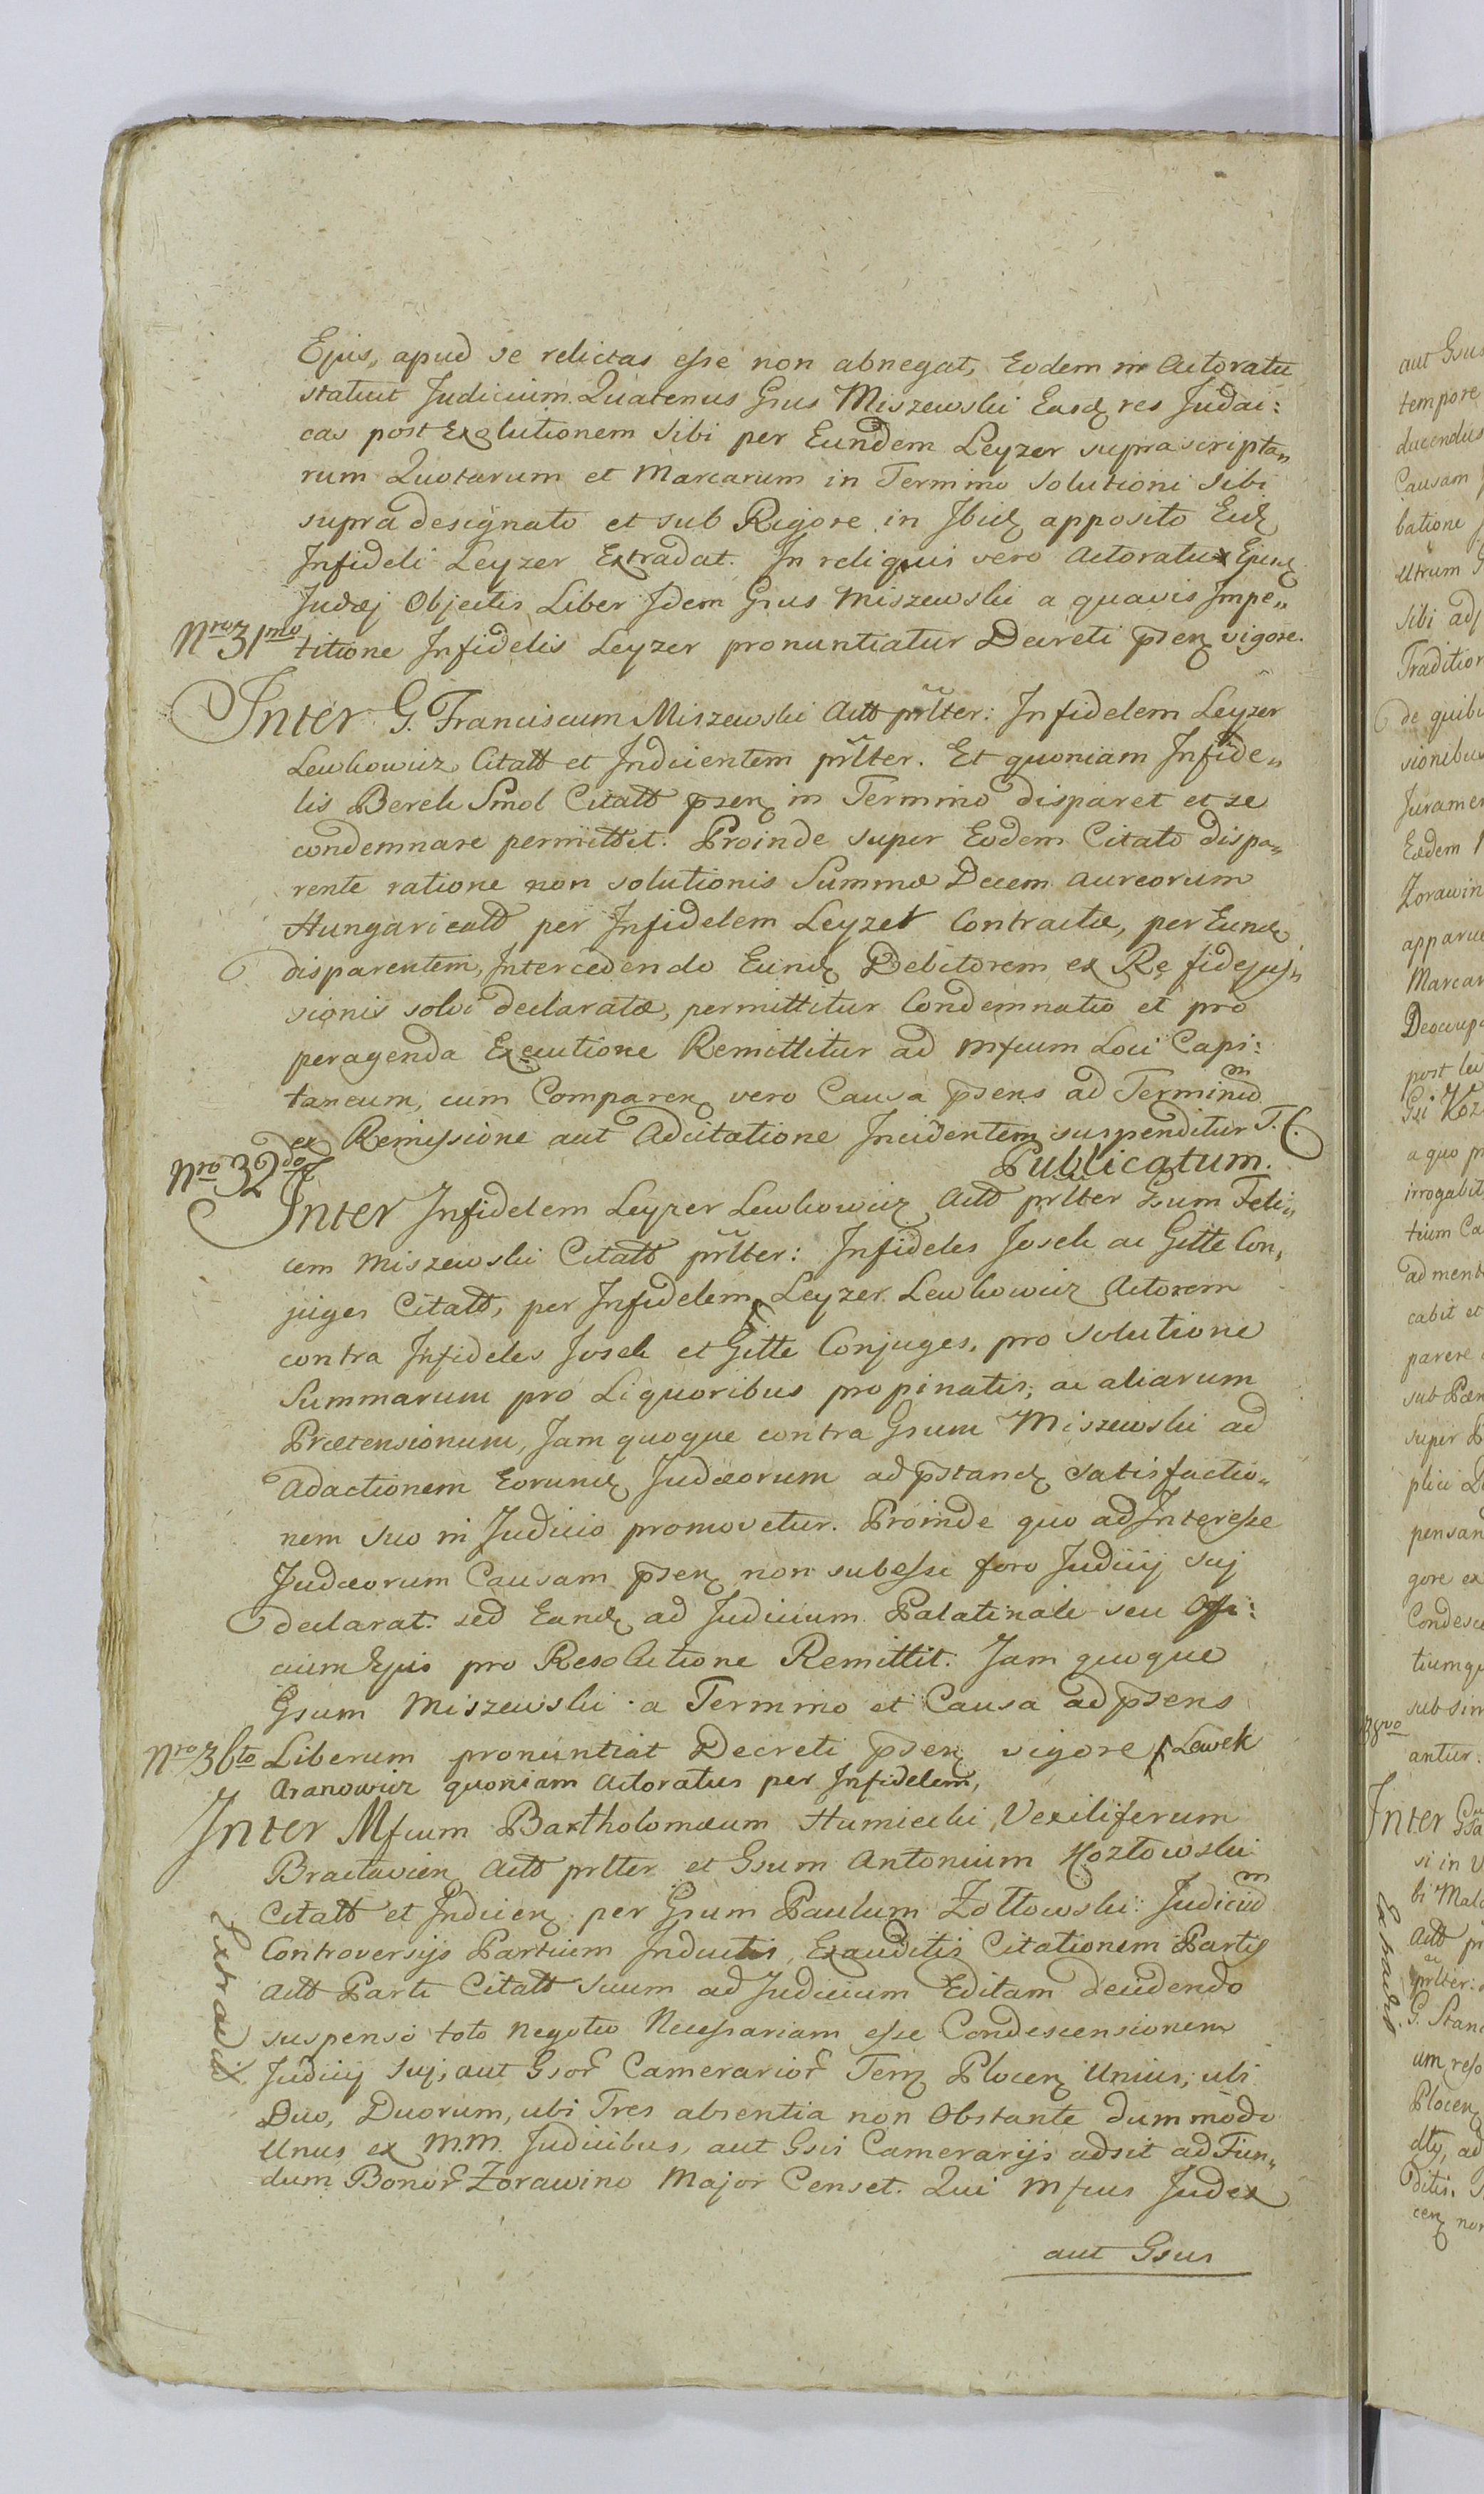 Ejus, apud se relictas esse non abnegat, Eodem in Actoratu
statuit Judicium. Quatenus Gsus Miszewski Easdq res Judai:
cas post Exolutionem sibi per Eundem Leyzer suprascripta„
rum Quotarum et Marcarum in Termino Solutioni Sibi
supra designato et sub Rigore in Ibidq apposito Eidq
Infideli Leyzer Extradat. In reliquis vero Actoratus Ejusdq
Judæj Objectis Liber Idem Gsus Miszewski a quavis Impe„
titione Infidelis Leyzer pronuntiatur Decreti psenq vigore.
Nro 31mo
Inter G. Franciscum Miszewski Actt prlter: Infidelem Leyzer
Lewkowicz Citatt et Inducentem prlter. Et quoniam Infide„
lis Berek Smol Citatt psenq in Termino disparet et se
condemnare permittit. Proinde super Eodem Citato dispa„
rente ratione non solutionis Summæ Decem Aureorum
Hungaricatt per Infidelem Leyzer Contractæ, per Eundq
disparentem, Intercedendo Eundq Debitorem ex Re fidejus„
sionis solvi declaratæ, permittitur Condemnatio et pro
peragenda Executione Remittitur ad Mfcum Loci Capi:
taneum, cum Comparenq vero Causa psens ad Terminum
ex Remissione aut Adcitatione Incidentem suspenditur T. C.
Publicatum.
Nro 32do
Inter Infidelem Leyzer Lewkowicz Actt prlter Gsum Feli„
cem Miszewski Citatt prlter: Infideles Josek ac Gitte Con„
juges Citatt, per Infidelem Leyzer Lewkowicz Actorem
contra Infideles Josek et Gitte Conjuges, pro Solutione
Summarum pro Liquoribus propinatis, ac aliarum
Prætensionum, Jam quoque contra Gsum Miszewski ad
Adactionem Eorundq Judæorum ad pstandq satisfactio„
nem suo in Judicio promovetur. Proinde quo ad Interesse
Judæorum Causam psenq non subesse foro Judicij suj
declarat: sed Eandq ad Judicium Palatinale seu Offi:
cium Ejus pro Resolutione Remittit. Jam quoque
Gsum Miszewski a Termino et Causa ad psens
Liberum pronuntiat Decreti psenq vigore Lewek
Aranowicz quoniam Actoratus per Infidelem,
Nro 36to
Inter Mfcum Bartholomæum Humiecki, Vexiliferum
Braclavienq Actt prlter et Gsum Antonium Kozłowski
Citatt et Inducenq per Gsum Paulum Zołtowski: Judicium
Controversijs Partium Inductis, Exauditis Citationem Partis
Actt Parti Citatt suum ad Judicium Editam decidendo
suspenso toto Negotio Necessariam esse Condescensionem
Judicij Suj, aut Gsor Camerarior Terrq Plocenq Unius, ubi
Duo, Duorum, ubi Tres absentia non Obstante dummodo
Unus ex M.M. Judicibus, aut Gsis Camerarijs adsit ad Fun„
dum Bonor Zorawino Major Censet. Qui Mfcus Judex
aut Gsus
aut Gsus
tempore
ducendus
Causam
batione
Utrum
Sibi adj
Tradition
de quibu
sionibus
Juramen
Eædem
Zorawin
apparue
Marcar
Deoccupa
Gsi Koz
a quo pr
irrogabit
tium Ca
ad ment
cabit et
parere
sub Pæn
super
plici
pensan
gore ex
Condesce
tiumqu
sub sim
antur.
38vo
Inter
si in
Actt pr
prlter:
G. Stan
um, reso
Plocenq
ditis.